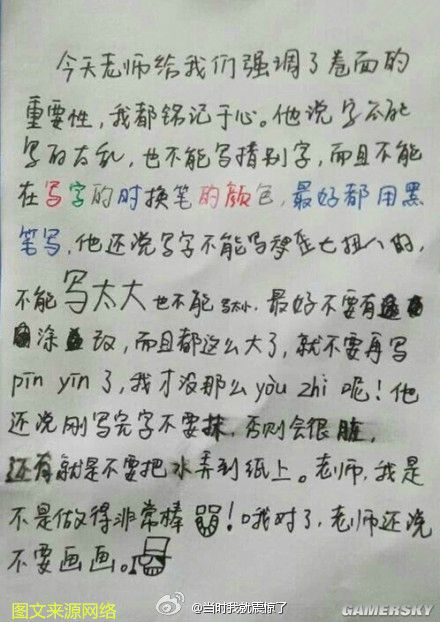 今天老师给我们强调了卷面的
重要性，我都铭记于心。他说写字不能
写的太乱，也不能写错别字，而且不能
在写字的时换笔的颜色，最好都用黑
笔写，他还说写字不能写歪七扭八的，
不能写太大也不能写太小，最好不要有
涂改，而且都这么大了，就不要再写
pīn yīn了，我才没那么yòu zhi呢！他
还说刚写完字不要抹，否则会很脏，
还有就是不要把水弄到纸上。老师，我是
不是做得非常棒！哦对了，老师还说
不要画画。
图文来源网络
@当时我就震惊了
GAMERSKY